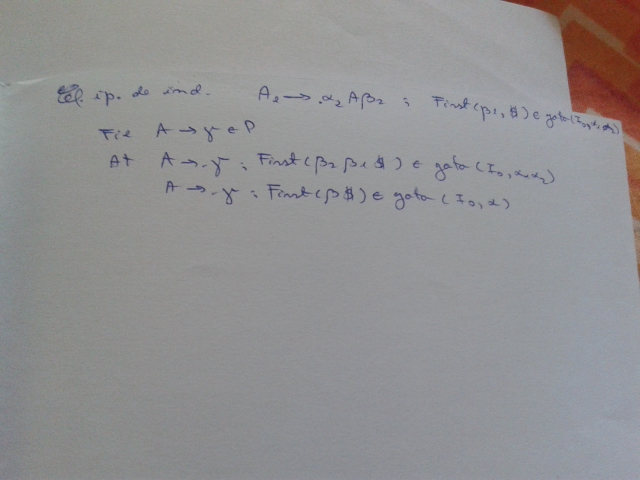 cf. ip. de ind. A₂ → .α₂Aβ₂ ; First(β₁, $) ∈ goto(I₀, α₁α₂)
Fie A → γ ∈ P
At A → .γ ; First(β₂β₁$) ∈ goto(I₀, α₁α₂)
A → .γ ; First(β$) ∈ goto(I₀, α)